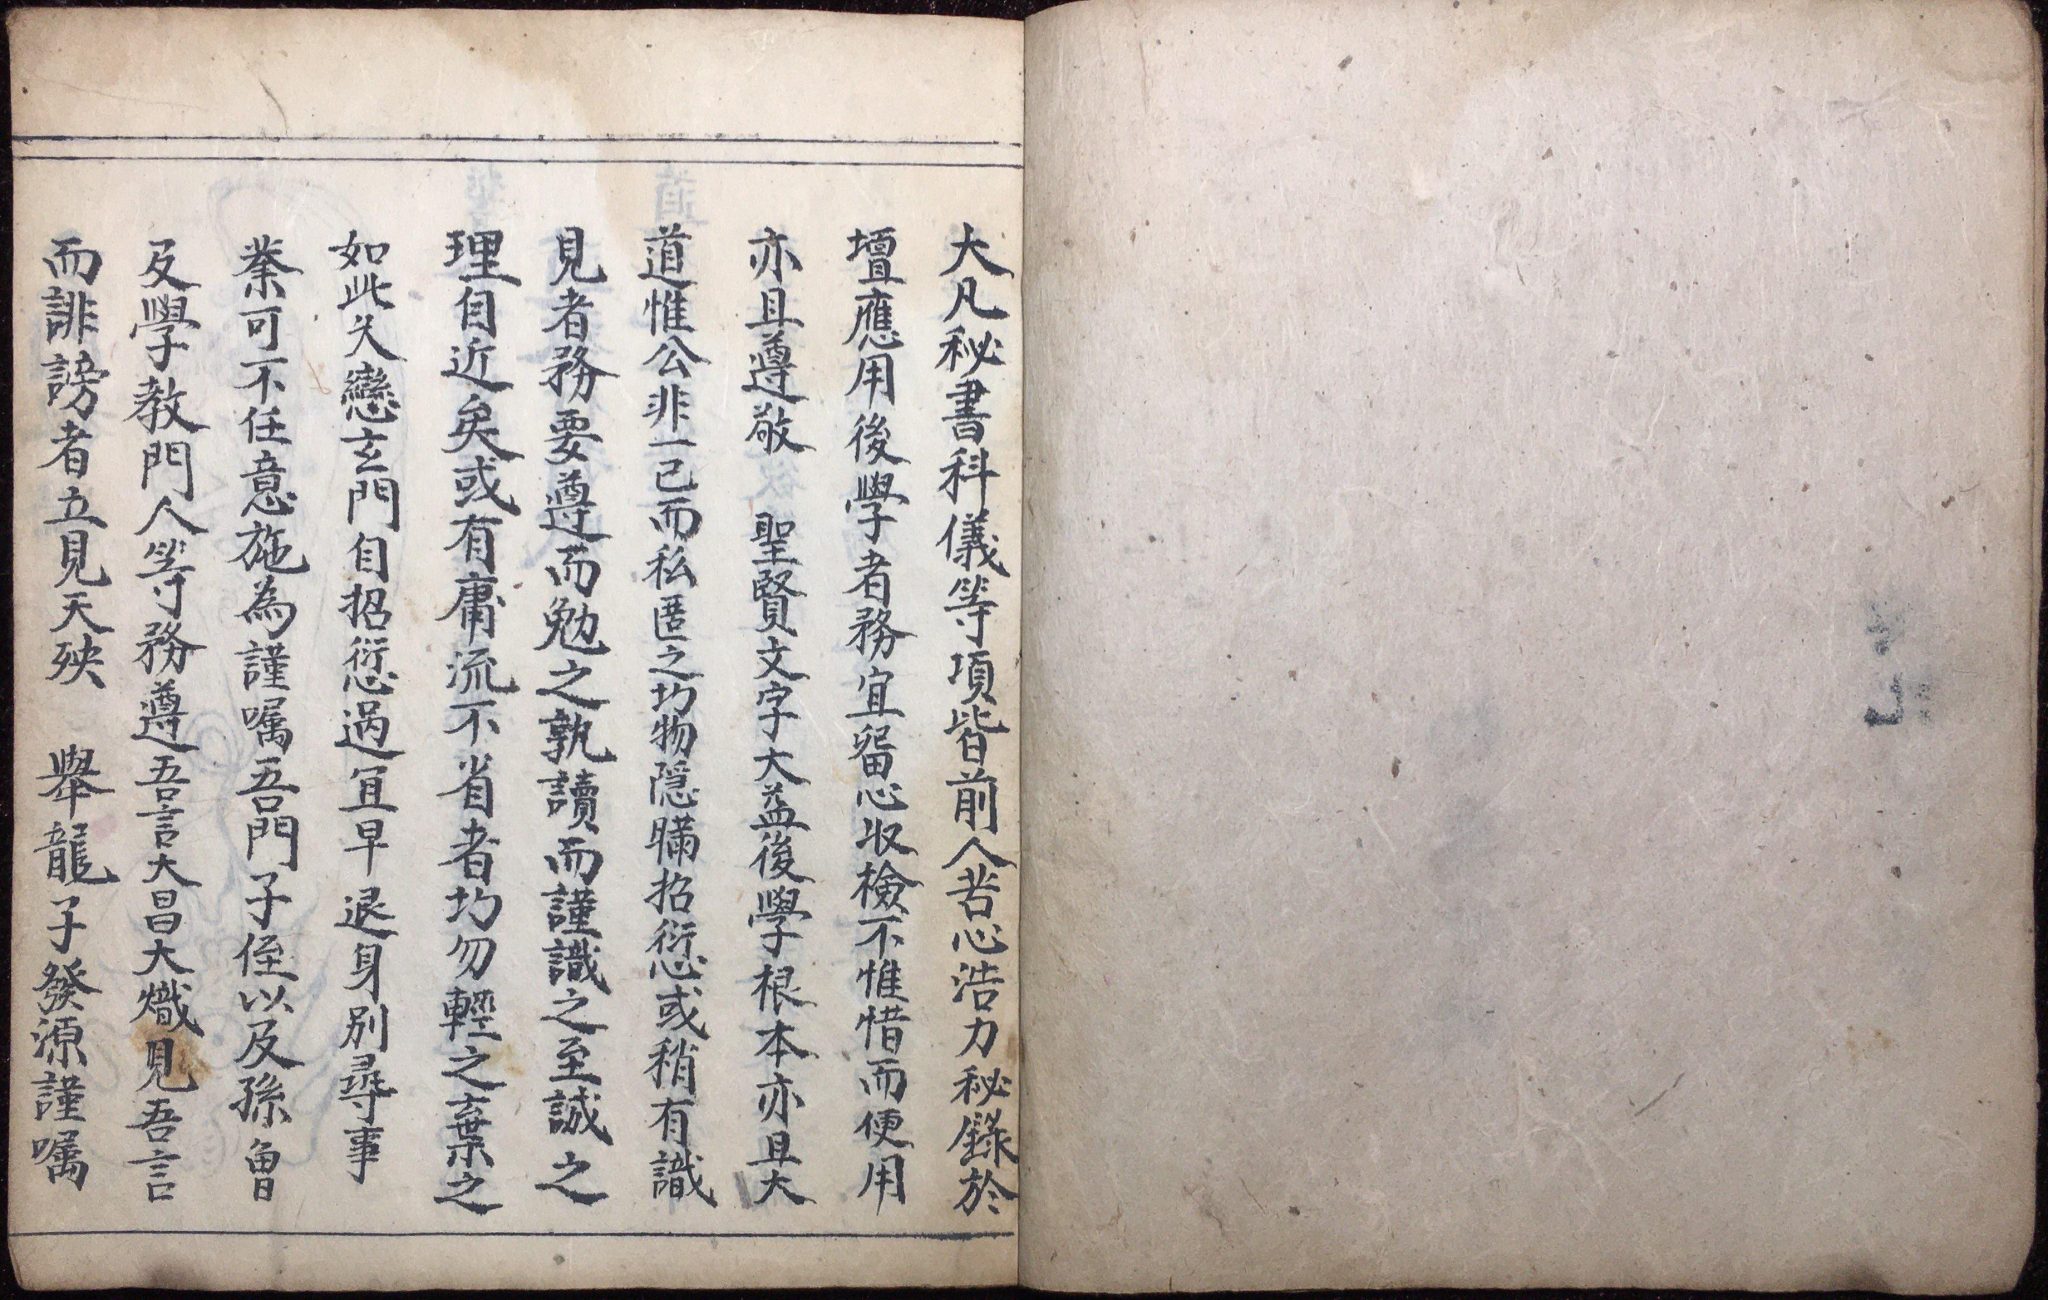 大凡秘書科儀等項皆前人苦心浩力秘錄於
壇應用後學者務宜留心收檢不惟惜而便用
亦且遵敬　聖賢文字大益後學根本亦且大
道惟公非一己而私匿之均物隱瞞招衍愆或稍有識
見者務要遵而勉之孰讀而謹識之至誠之
理自近矣或有庸流不省者均勿輕之棄之
如此失戀玄門自招衍愆過宜早退身別尋事
業可不任意施為謹囑吾門子侄以及孫曾
及學教門人等務遵吾言大昌大熾見吾言
而誹謗者立見天殃　舉龍子發源謹囑